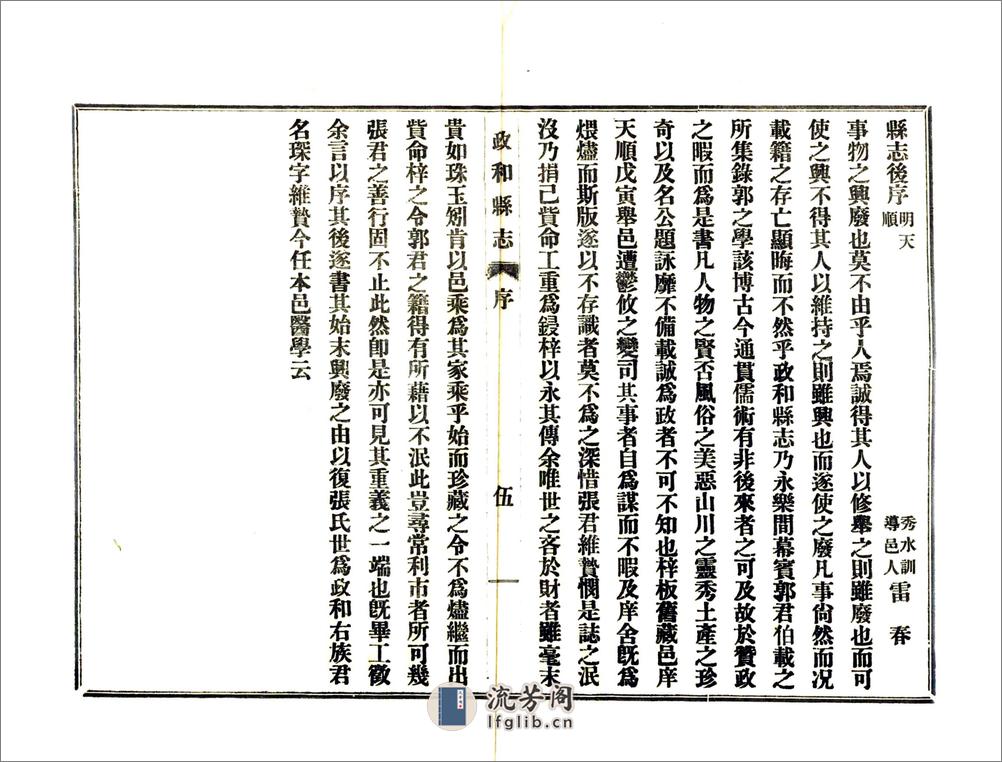 縣志後序 明天順 秀水訓導邑人 雷春
事物之興廢也莫不由乎人焉誠得其人以修舉之則雖廢也而可
使之興不得其人以維持之則雖興也而遂使之廢凡事尙然而况
載籍之存亡顯晦而不然乎政和縣志乃永樂間幕賓郭君伯載之
所集錄郭之學該博古今通貫儒術有非後來者之可及故於贊政
之暇而爲是書凡人物之賢否風俗之美惡山川之靈秀土產之珍
奇以及名公題詠靡不備載誠爲政者不可不知也梓板舊藏邑庠
天順戊寅舉邑遭鬱攸之變司其事者自爲謀而不暇及庠舍旣爲
煨燼而斯版遂以不存識者莫不爲之深惜張君維贄憫是誌之泯
沒乃捐己貲命工重爲鋟梓以永其傳余唯世之吝於財者雖毫末
政和縣志 序 伍
貴如珠玉矧肯以邑乘爲其家乘乎始而珍藏之令不爲燼繼而出
貲命梓之令郭君之籍得有所藉以不泯此豈尋常利市者所可幾
張君之善行固不止此然卽是亦可見其重義之一端也旣畢工徵
余言以序其後遂書其始末興廢之由以復張氏世爲政和右族君
名琛字維贄今任本邑醫學云
流芳阁
lfglib.cn